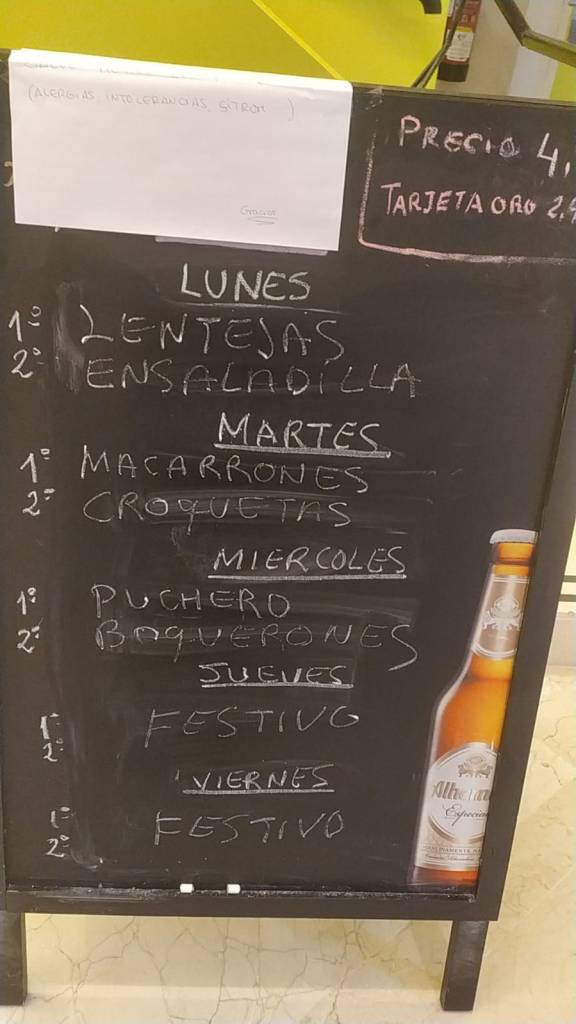 (ALERGIAS, INTOLERANCIAS, SINTROM )
Gracias
PRECIO 4,
TARJETA ORO 2,
LUNES
1º LENTEJAS
2º ENSALADILLA
MARTES
1º MACARRONES
2º CROQUETAS
MIERCOLES
1º PUCHERO
2º BOQUERONES
JUEVES
1º FESTIVO
2º
VIERNES
1º FESTIVO
2º
Alham
Especial